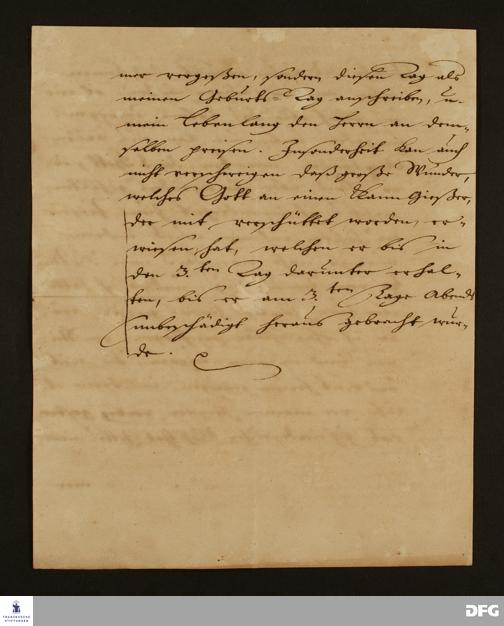 mer vergeßen, sondern diesen Tag als
meinen Geburts-Tag anschreiben, u.
mein Lebenlang den Herrn an dem-
selben preisen. Insonderheit kan auch
nicht verschweigen daß große Wunder,
welches Gott an einen Kann Gießer,
der mit verschüttet worden, er-
wiesen hat, welchen er bis in
den 3.ten Tag darunter erhal-
ten, bis er am 3.ten Tage Abends
unbeschädigt heraus gebracht wur-
de.
FRANCKESCHE
STIFTUNGEN
DFG